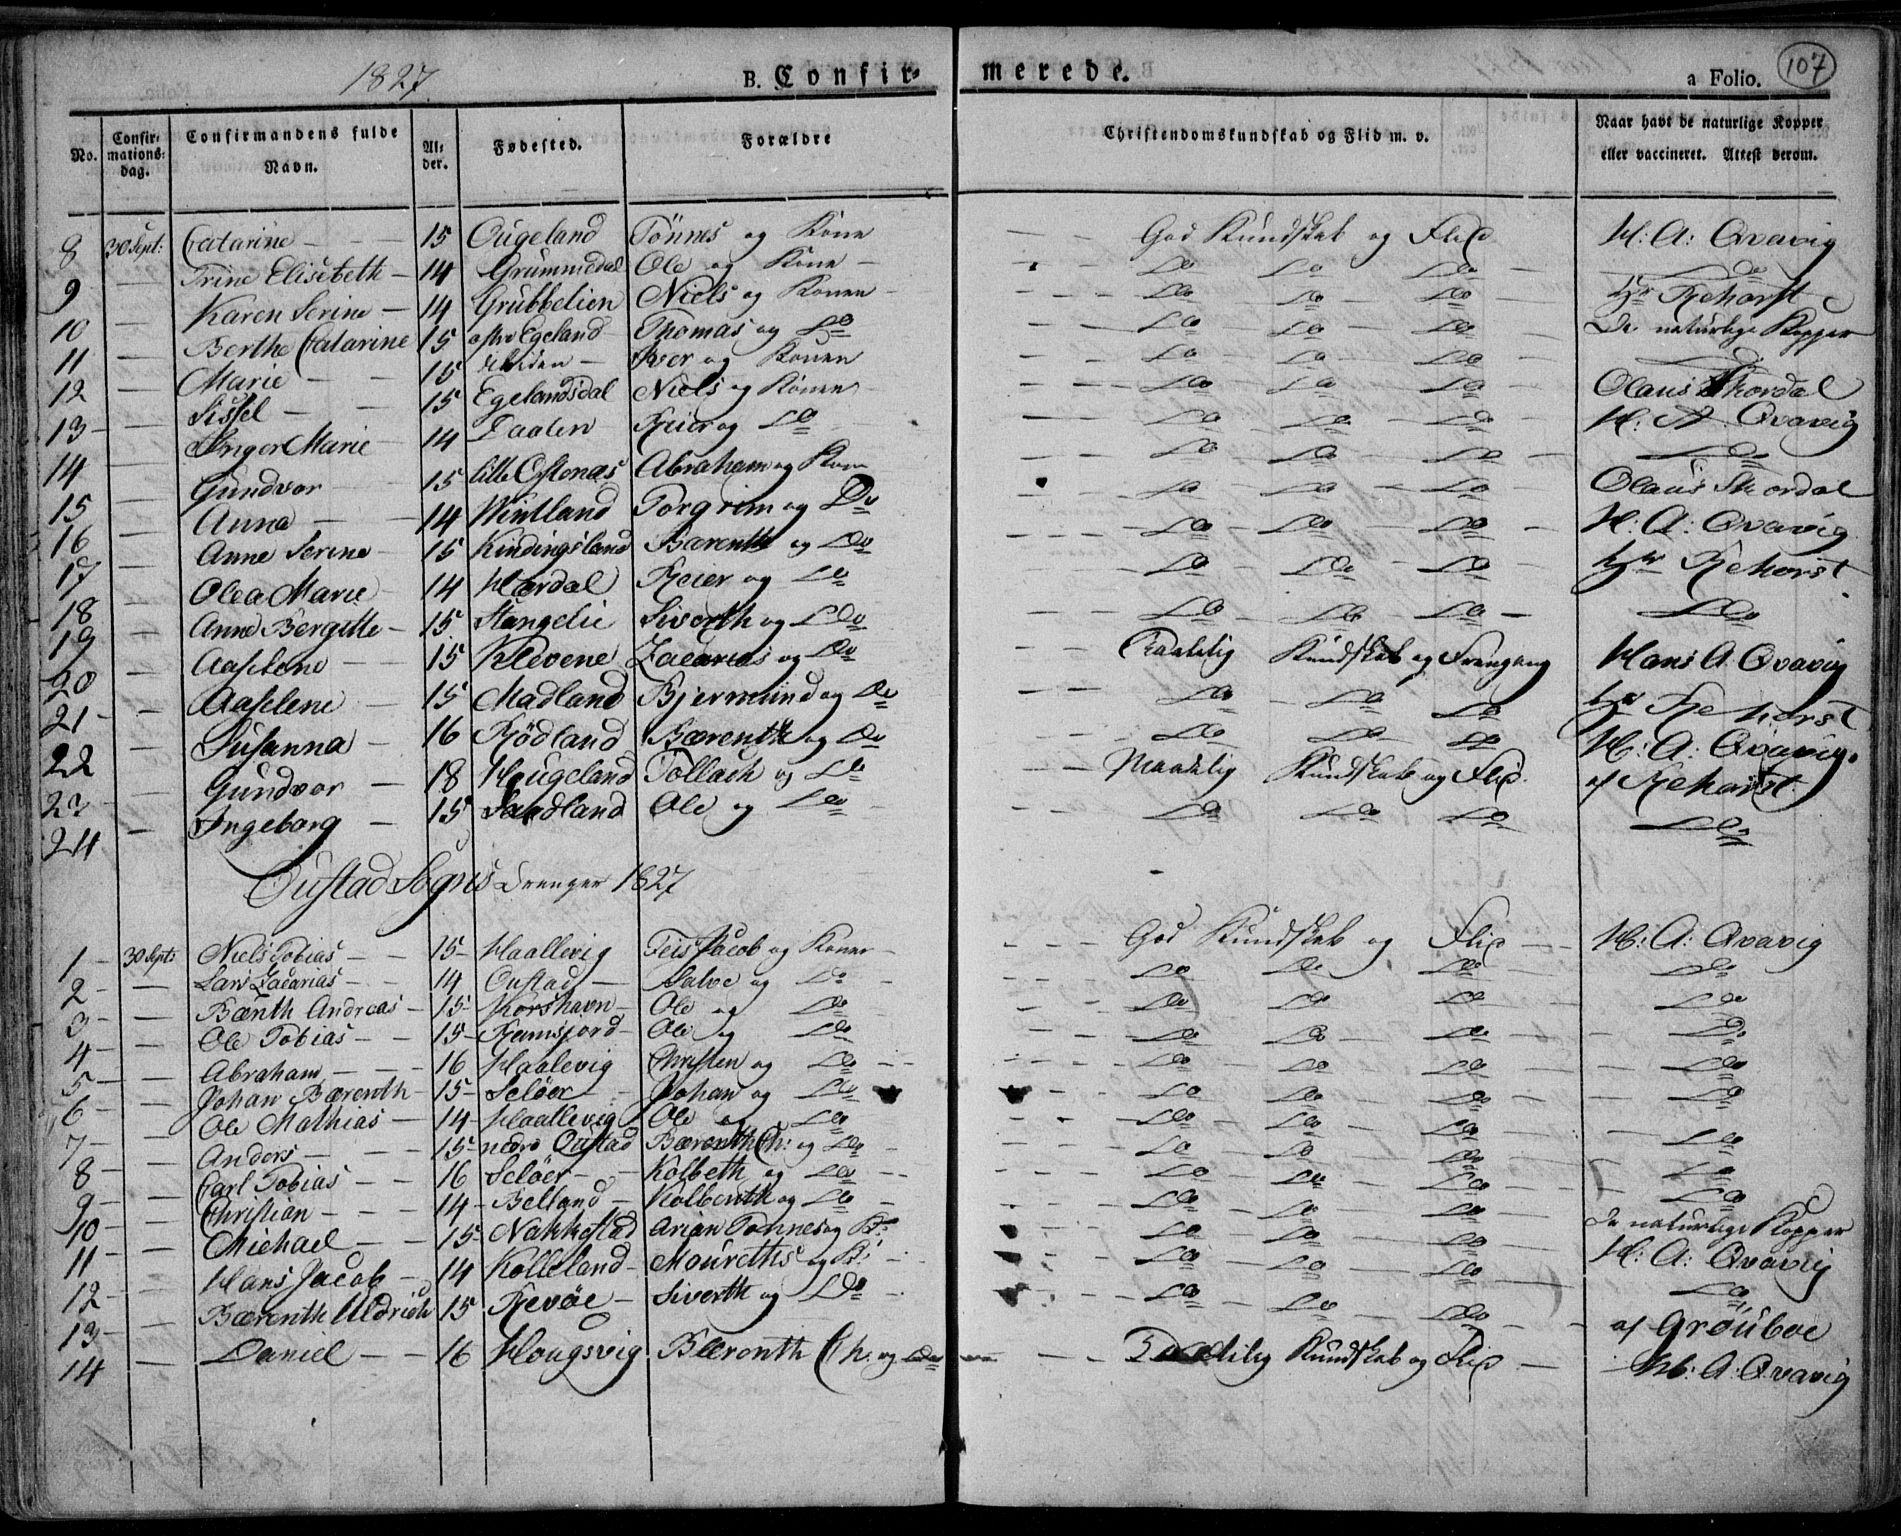 1827
B. Confir-
merede.
a Folio.
107
No.
Confir-
mations-
dag.
Confirmandens fulde
Navn.
Al-
der.
Fødested.
Forældre
Christendomskundskab og Flid m. v.
Naar havt de naturlige Kopper
eller vaccineret. Attest derom.
8 30 Sept: Catarine — — 15 Ougeland Tönnes og Kone — — God Kundskab og Flid H: A: Qvavig
9 — Trine Elisebeth — 14 Grummedal Ole og Kone — Do Do Do — Do
10 — Karen Serine — 14 Grubbelien Niels og Konen — Do Do Do Hr Rehorst
11 — Berthe Catarine 15 Egeland Thomas og Do Do Do Do De naturlige Kopper
12 — Marie — — 15 Iver og Konen Do Do Do Do
13 — Sissel — — 15 Egelandsdal Niels og Konen Do Do Do Olaus Skordal
14 — Inger Marie — 14 Daalen Reier og Do Do Do Do H: A: Qvavig
15 — Gundvor — 15 Lille Abraham og Kone Do Do Do Do
16 — Anna — — 14 Wintland Torgrim og Do Do Do Do Olaus Skordal
17 — Anne Serine — 15 Kindingsland Bærenth og Do Do Do Do H: A: Qvavig
18 — Olea Marie 14 Hærdal Reier og Do Do Do Do Hr Rehorst
19 — Anne Bergitte — 15 Stangelie Siverth og Do Do Do Do Do
20 — Aaslene — — 15 Klevene Zacarias og Do Maadelig Kundskab og Fremgang Hans A. Qvavig
21 — Aaslene — 15 Madland Bjermund og Do Do Do Do Hr Rehorst
22 — Susanna — 16 Rödland Bærenth og Do Do Do Do H: A: Qvavig.
23 — Gundvor — 18 Hougeland Tollach og Do Maadelig Kundskab og Flid. af Rehorst
24 — Ingeborg — 15 Sandland Ole og Do — Do Do Do Do
Oustad Sogns Drenger 1827
1 — 30 Septr Niels Tobias — — 15 — Haallevig Teis Jacob og Konen — God Kundskab og Flid — H: A: Qvavig
2 — Lars Zacarias — — 14 Oustad — Salve og Do Do Do Do Do
3 — Bænth Andreas — 15 — Korshavn — Ole og Do Do Do Do Do
4 — Ole Tobias — — 15 — Ramsfjord — Ole og Do Do Do Do Do
5 — Abraham — — 16 Haalevig Christen og Do Do Do Do Do
6 — Johan Bærenth 15 — Selöer — Johan og Do Do Do Do Do
7 — Ole Mathias — 14 — Haallevig Ole og Do Do Do Do
8 — Anders — — 15 — nedre Oustad Bærenth Ch: og Do Do Do Do Do
9 — Carl Tobias — — 16 Selöer — Kolbeth og Do Do Do Do Do
10 — Christian — — 14 — Belland — Kolbenth og Do Do Do Do Do
11 — Michael — — 15 — Nakkestad Arian Tönnes og K: Do Do Do De naturlige Kopper
12 — Hans Jacob — 14 Kolleland — Mourethis og K: Do Do Do H: A: Qvavig
13 — Bærenth Uldrich 15 Revöe — Siverth og Do Do Do Do Do
af Gröuboe
14 — Daniel — — 16 Hougsvig Bærenth Ch. og Do Kundskab og Flid — H: A: Qvavig